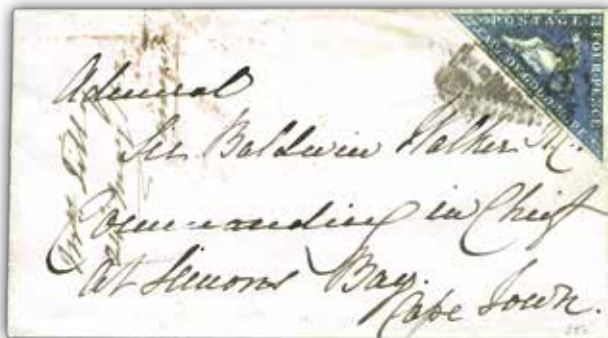 POSTAGE
FOUR PENCE
CAPE OF GOOD HOPE
Admiral
Sir Baldwin Walker
Commanding in Chief
At Simons Bay.
Cape Town.